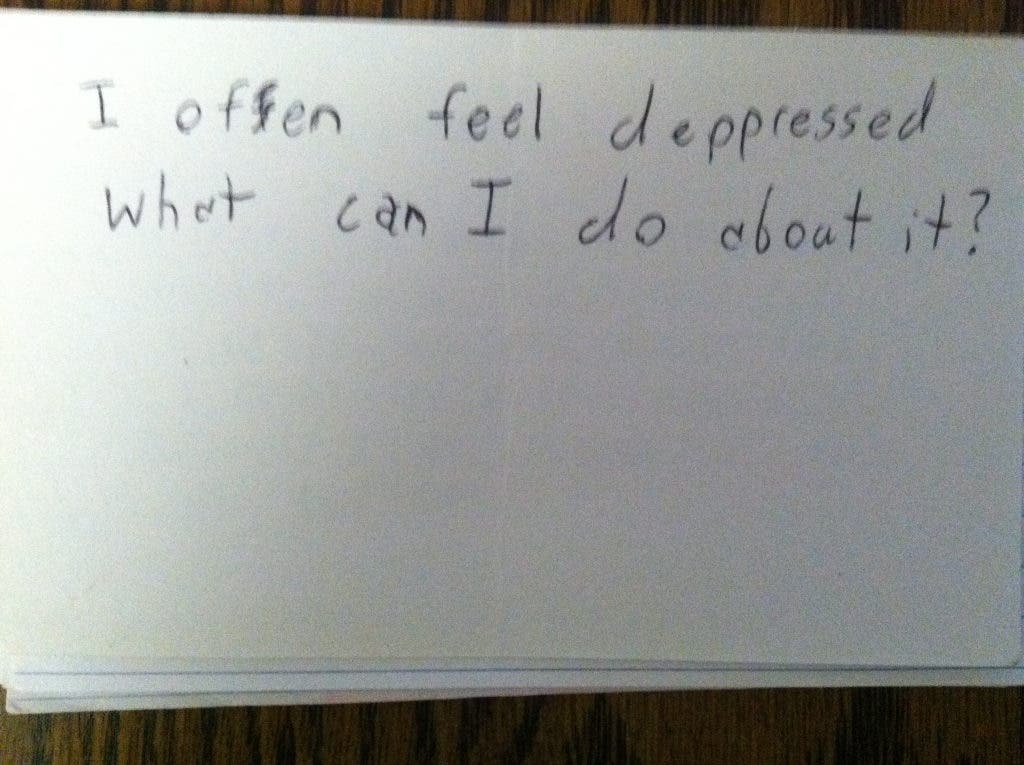 I often feel deppressed
What can I do about it?